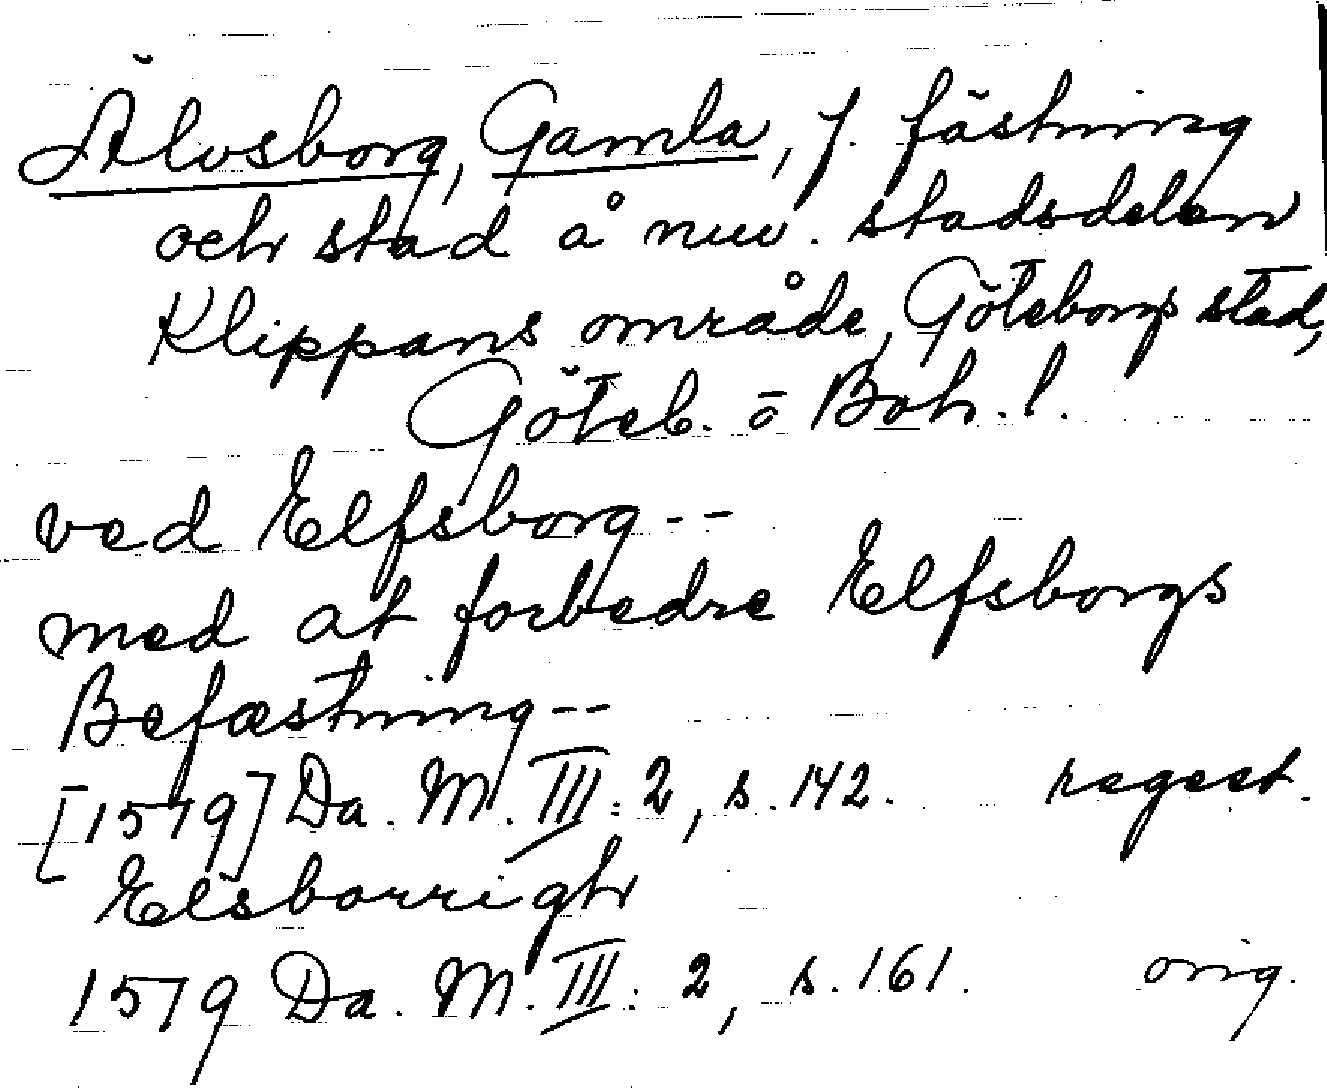 Älvsborg, Gamla, f. fästning
och stad å nuv. stadsdelen
Klippans område, Göteborgs stad,
Göteb. o Boh. l.
ved Elfsborg--
med at forbedre Elfsborgs
Befæstning--
[1579] Da. M. III: 2, s. 142. regest.
Elsborrigh
1579 Da. M. III: 2, s. 161. orig.